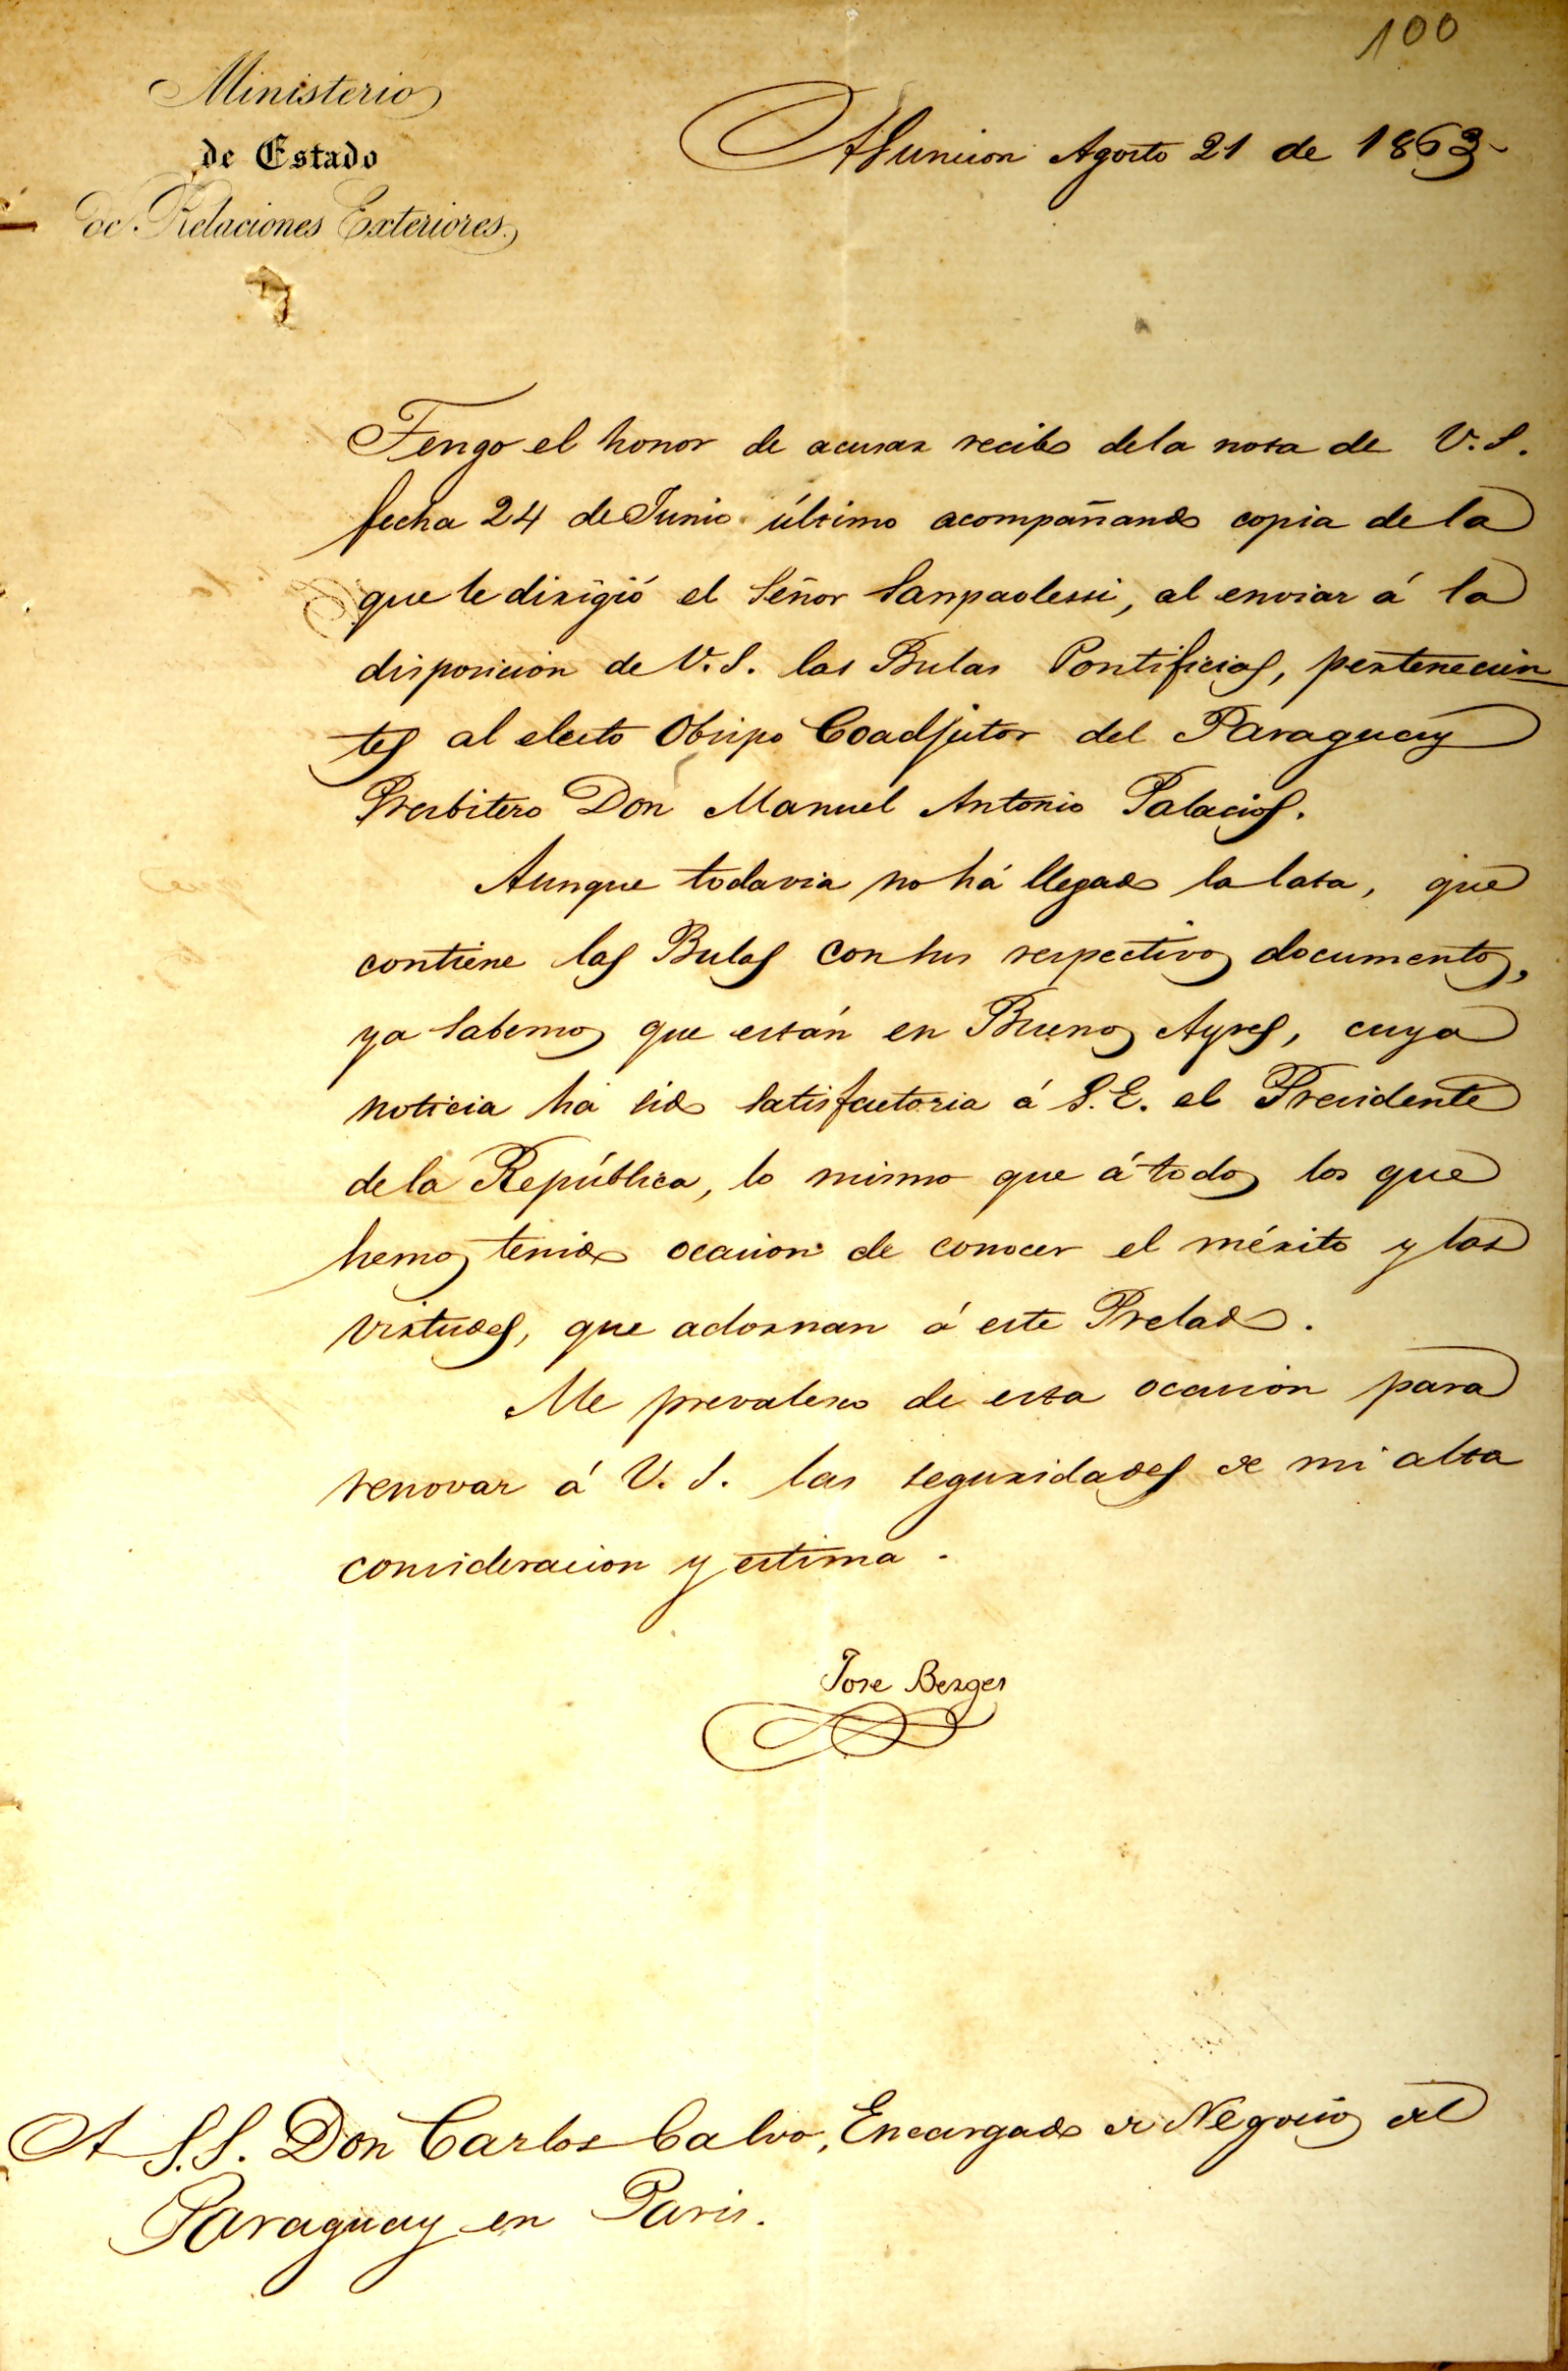 100
Ministerio
de Estado
de Relaciones Exteriores.
Asuncion Agosto 21 de 1863
Tengo el honor de acusar recibo de la nota de V. S.
fecha 24 de Junio último acompañando copia de la
que le dirigió el Señor Sanpaolessi, al enviar á la
disposicion de V. S. las Bulas Pontificias, pertenecien
tes al electo Obispo Coadjutor del Paraguay
Presbitero Don Manuel Antonio Palacios.
Aunque todavia no há llegado la lata, que
contiene las Bulas con sus respectivos documentos,
ya sabemos que están en Buenos Ayres, cuya
noticia há sido satisfactoria á S. E. el Presidente
de la República, lo mismo que á todos los que
hemos tenido ocasion de conocer el mérito y las
virtudes, que adornan á este Prelado.
Me prevalesco de esta ocasion para
renovar á V. S. las seguridades de mi alta
consideracion y estima.
Jose Berges
A S.S. Don Carlos Calvo, Encargado de Negocios del
Paraguay en Paris.